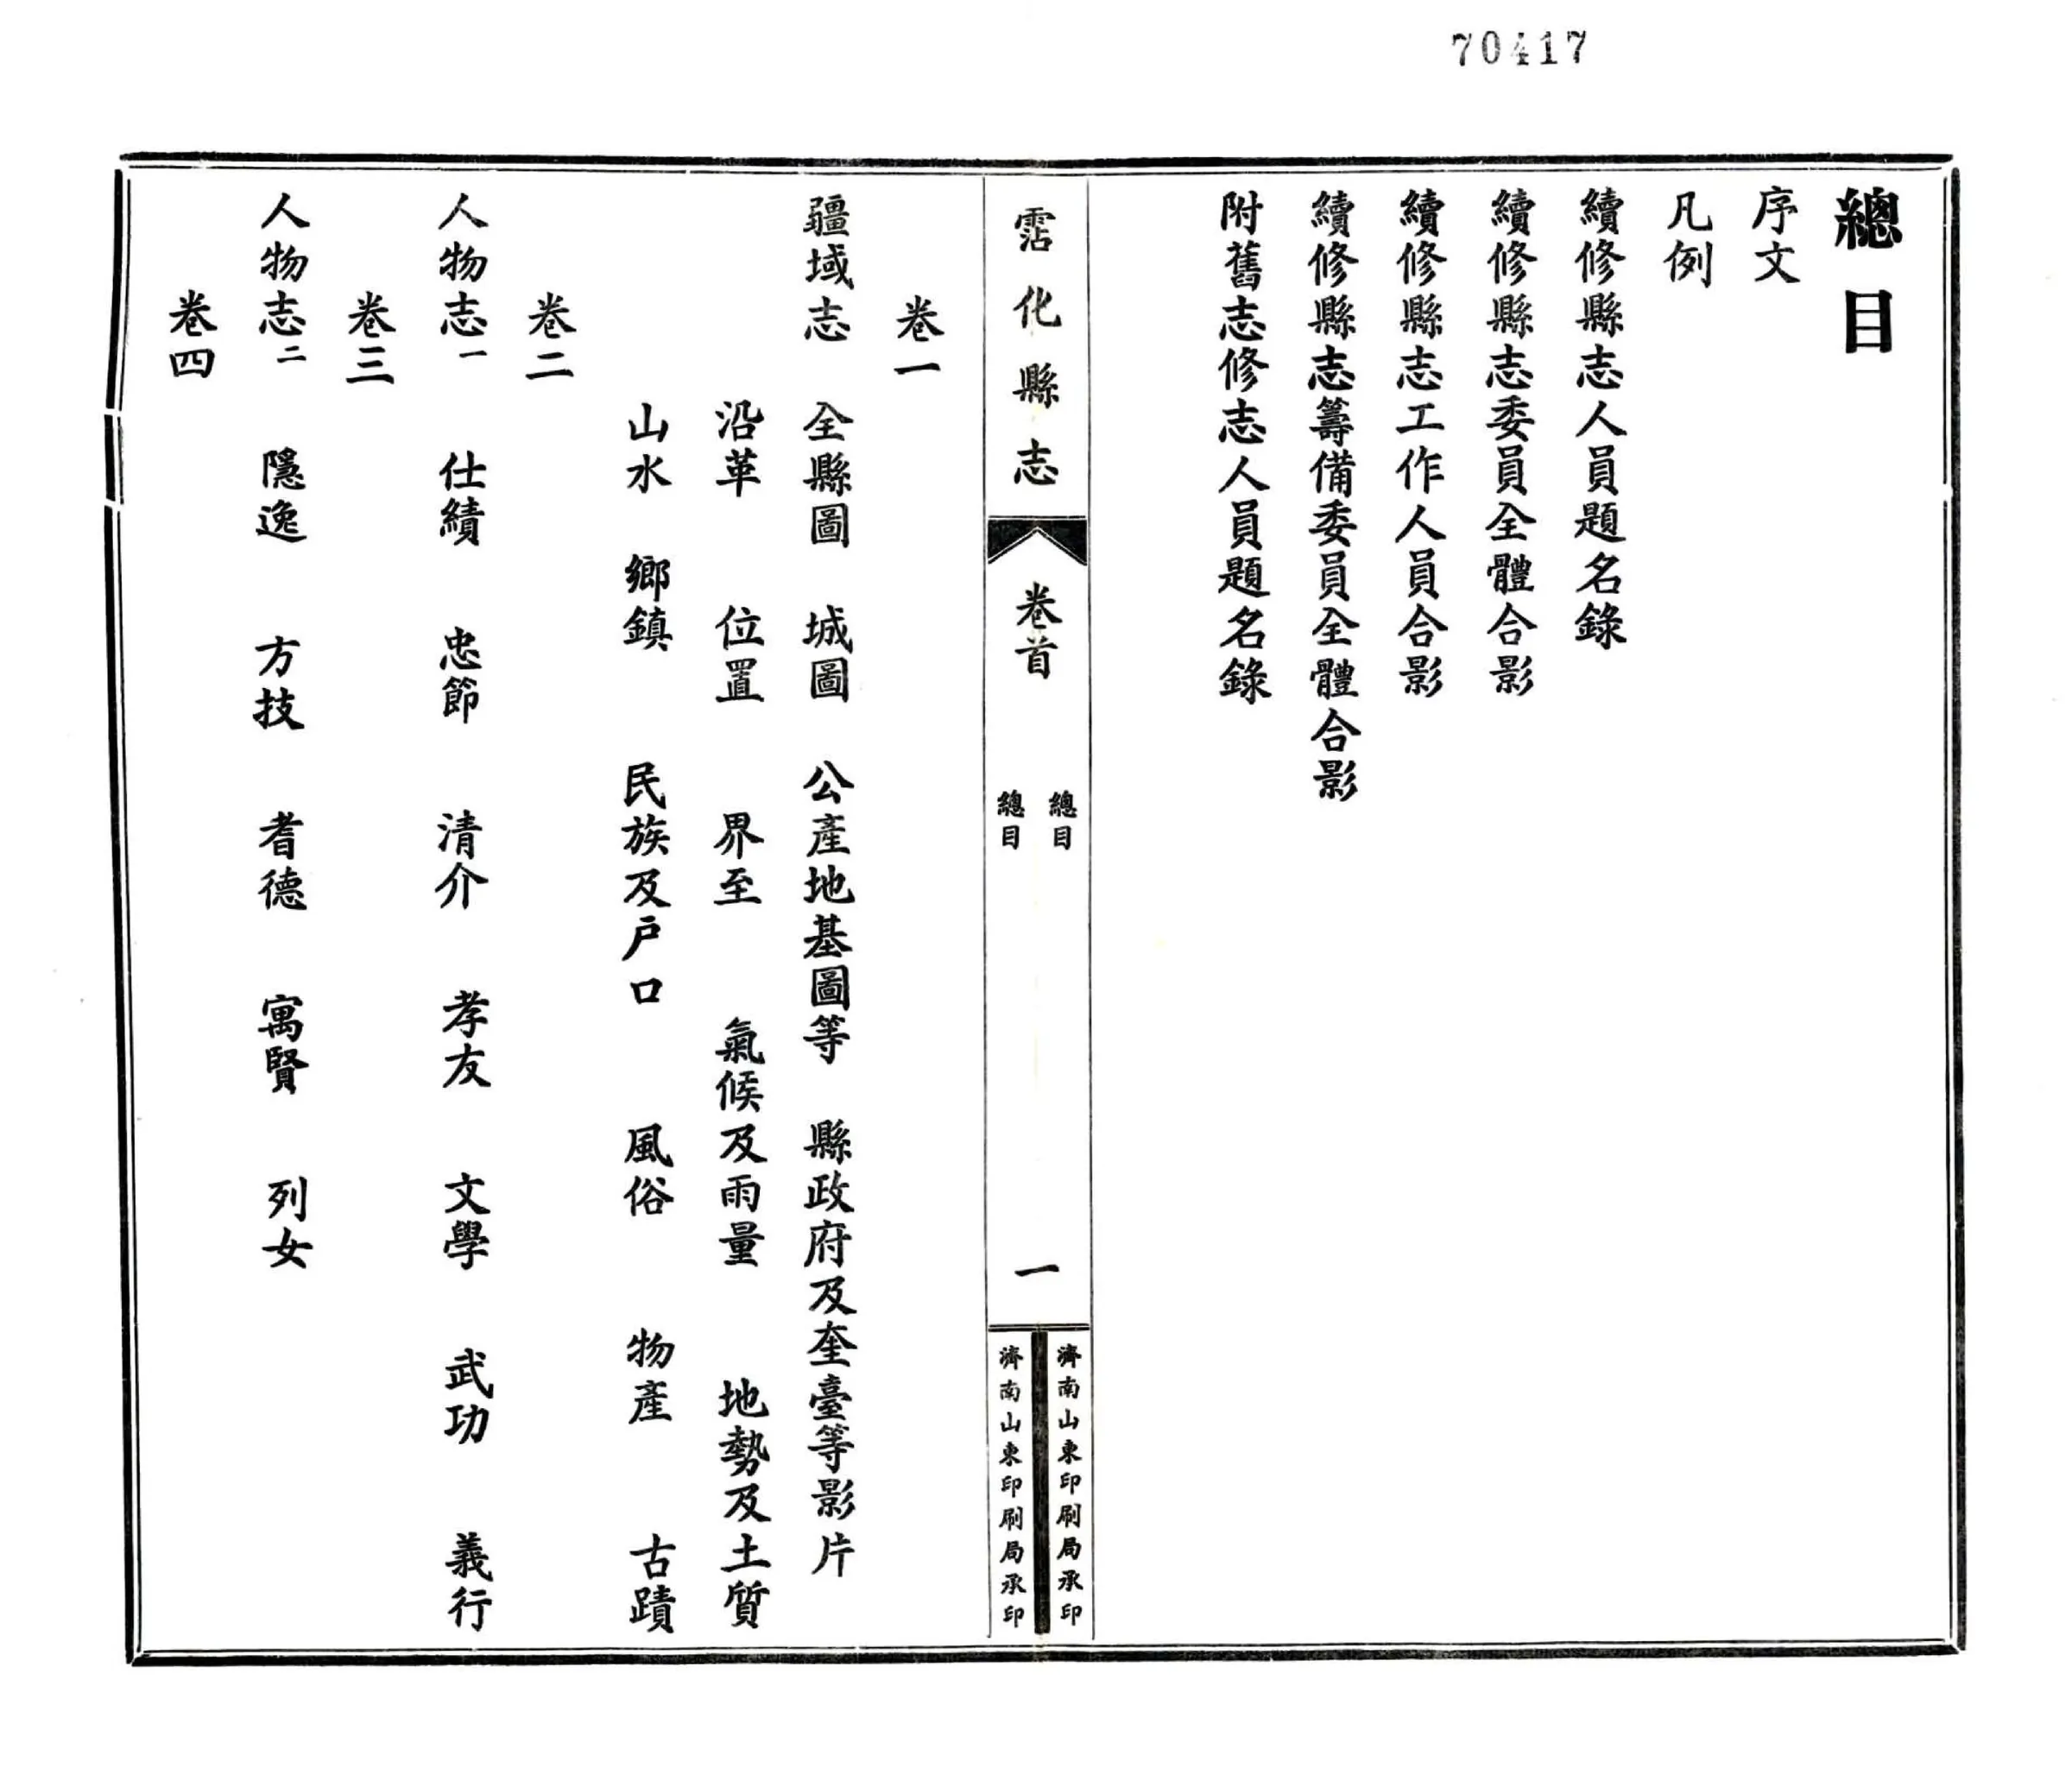 70417
總目
序文
凡例
續修縣志人員題名錄
續修縣志委員全體合影
續修縣志工作人員合影
續修縣志籌備委員全體合影
附舊志修志人員題名錄
霑化縣志 卷首 總目 總目 一
濟南山東印刷局承印
濟南山東印刷局承印
卷一
疆域志 全縣圖 城圖 公產地基圖等 縣政府及奎臺等影片
沿革 位置 界至 氣候及雨量 地勢及土質
山水 鄉鎮 民族及戶口 風俗 物產 古蹟
卷二
人物志一 仕績 忠節 清介 孝友 文學 武功 義行
卷三
人物志二 隱逸 方技 耆德 寓賢 列女
卷四